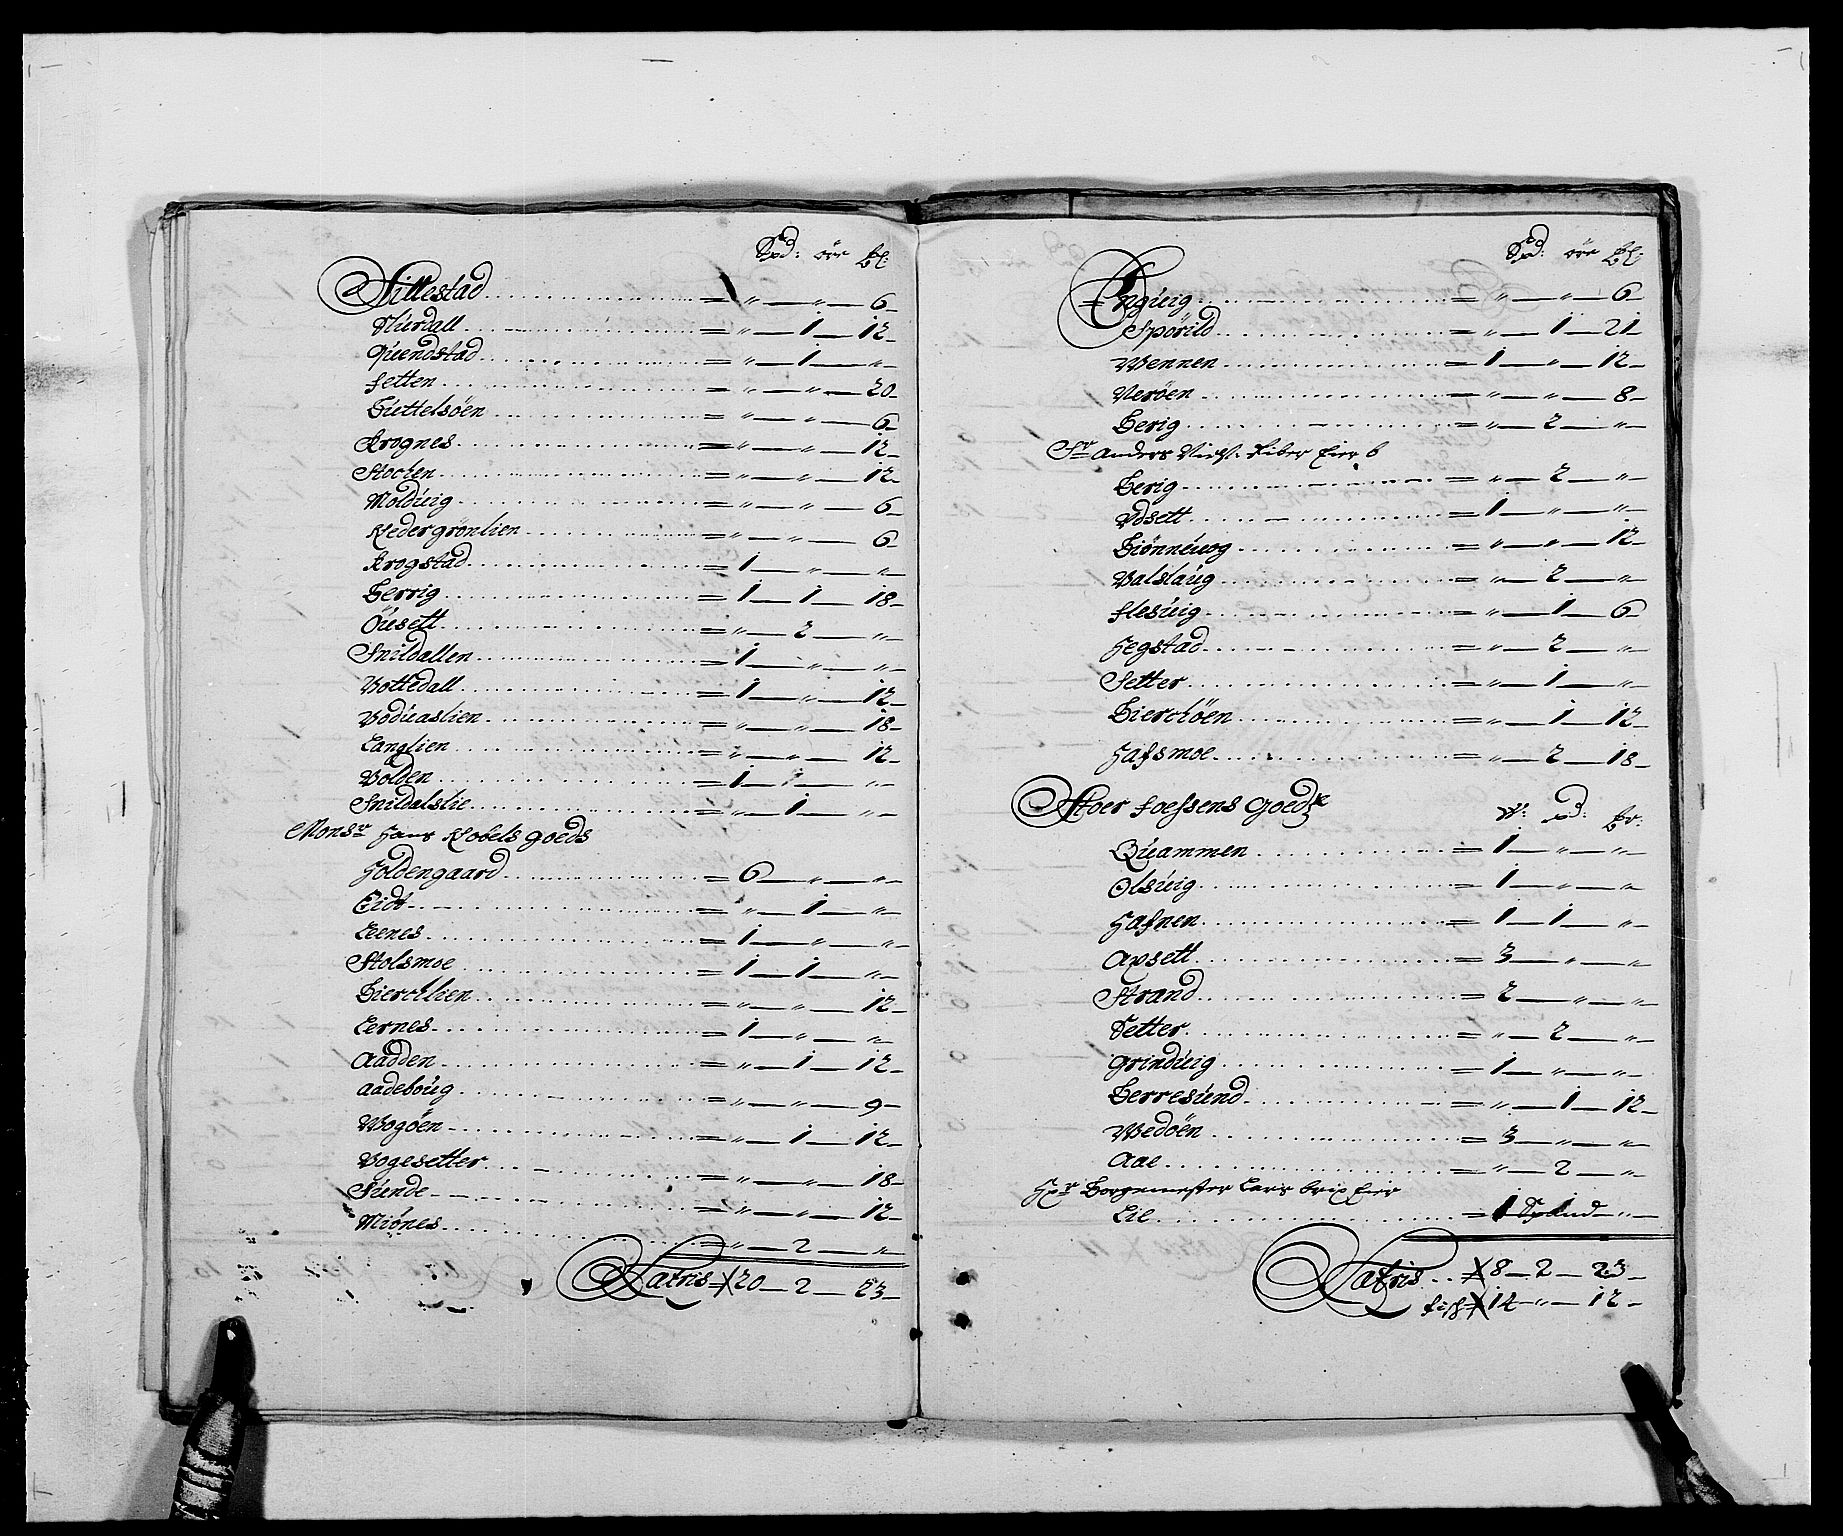 Spd: öre kl:
Sillestad = " — " — 6 —
Murdall = " — 1 — 12 —
Quendstad = " — 1 — " —
Setten = " — " — 20 —
Kiettelsöen = " — " — 6 —
Krognes = " — " — 12 —
Stochen = " — " — 12 —
Molduig = " — " — 6 —
Nedergrönlien = " — " — 6 —
Krogstad = 1 — " — " —
Berrig = 1 — 1 — 18 —
Öusett = " — 2 — " —
Snildallen = 1 — " — " —
Vottedall = 1 — " — 12 —
Voduaslien = " — " — 18 —
Langlien = " — " — 12 —
Volden = 1 — 1 — " —
Snildalslie = " — 1 — " —
Monsr Hans Nobels goeds
Holdengaard = 6 — " — " —
Eidt = " — 1 — " —
Leenes = 1 — " — " —
Stolsmoe = 1 — 1 — " —
Bierchlien = " — " — 12 —
Lernes = 1 — " — " —
Aadden = " — 1 — 12 —
Aadeboug = " — " — 9 —
Wogöen = " — 1 — 12 —
Vogesetter = " — " — 18 —
Siende = " — " — 12 —
Miönes = " — 2 — "
Latris = 20 — 2 — 23 —
Spd: öre kl:
Enguig = " — " — 6 —
Spörild = " — 1 — 21 —
Wennen = 1 — " — 12 —
Neröen = " — " — 8 —
Berig = " — 2 — " —
Sr Anders Riber Eier
Berig = " — 2 — " —
Vdsett = 1 — " — " —
Biönneuog = " — " — 12 —
Valslaug = " — 2 — " —
Flesuig = " — 1 — 6 —
Hegstad = " — 2 — " —
Setter = " — 1 — " —
Bierchöen = " — 1 — 12 —
Hafsmoe = " — 2 — 18 —
Stoer Foessens Goeds
W: pd: kr:
Quammen = 1 — " — " —
Olsuig = 1 — " — " —
Hafnen = 1 — 1 — " —
Apsett = 3 — " — " —
Strand = 2 — " — " —
Setter = " — 2 — " —
Grinduig = 1 — " — " —
Berresund = " — 1 — 12 —
Wedöen = 3 — " — " —
Aae = " — 2 — " —
Hr Borgemester Lars Brix Eier
Lie = 1 Spand — " —
Latris = 8 — 2 — 23 —
fisk = 14 — " — 12 —